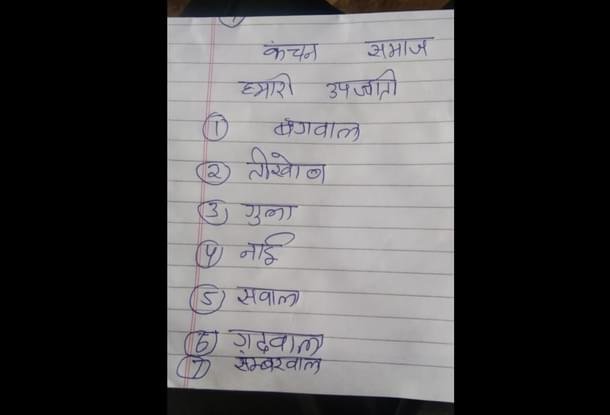 कंचन समाज
हमारी उपजाती
① बंगवाल
② तीखोल
③ गुला
④ नाई
⑤ सवाल
⑥ गढवाल
⑦ सम्बरवाल